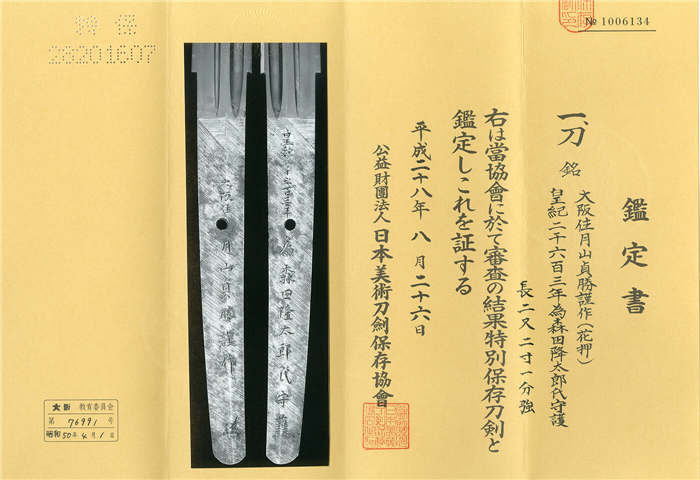 № 1006134
鑑定書
一、刀 銘 大阪住月山貞勝謹作(花押)
皇紀二千六百三年為森田隆太郎氏守護
長二尺二寸一分強
右は當協會に於て審査の結果特別保存刀剣と
鑑定しこれを証する
平成二十八年八月二十六日
公益財團法人 日本美術刀劍保存協會
28201607
皇紀二千六百三年為森田隆太郎氏守護
大阪住月山貞勝謹作
大阪 教育委員会
第 76991 号
昭和50年4月1日